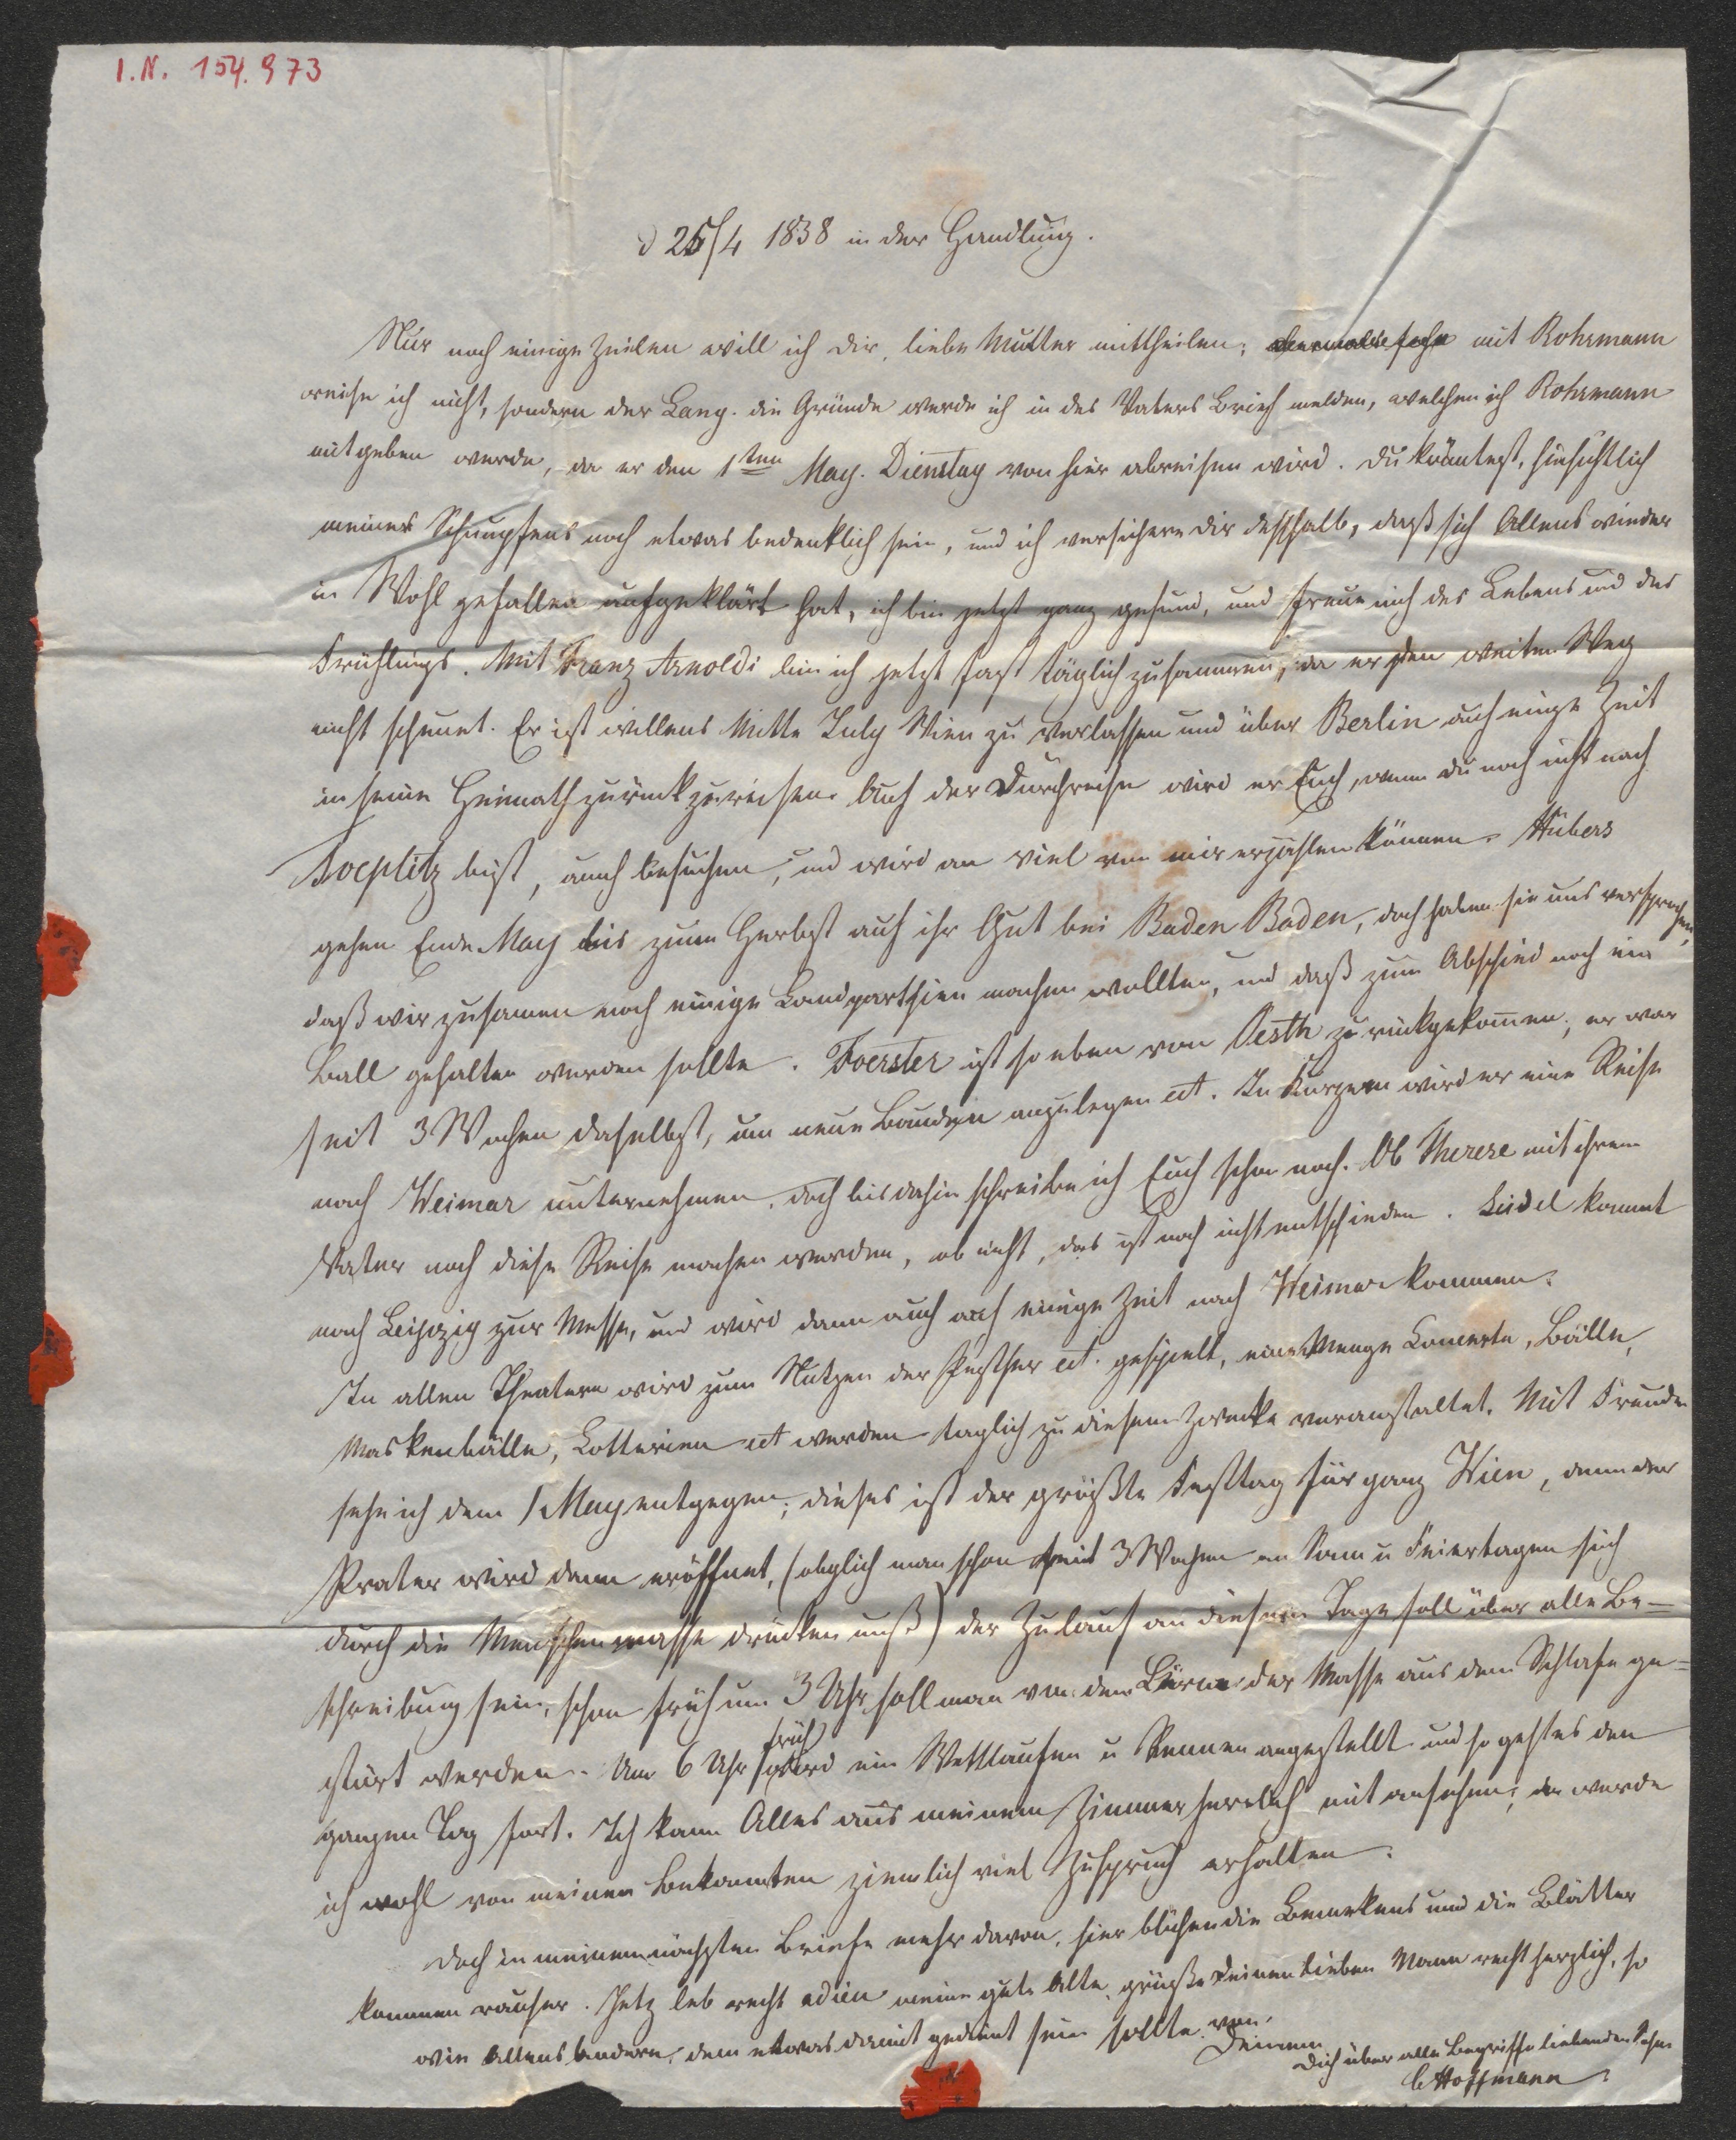 I.N. 154.973
d 25/4 1838 in der Handlung.
Nur noch einige Zeilen will ich dir, liebe Mutter mittheilen; mit Rohrmann
reise ich nicht, sondern der Lang. die Gründe werde ich in des Vaters Brief melden, welchen ich Rohrmann
mitgeben werde, da er den 1ten May. Dienstag von hier abreisen wird. Du könntest, hinsichtlich
meines Schnupfens noch etwas bedenklich sein, und ich versichere dir desshalb, daß sich Allens wieder
in Wohl gefallen aufgeklärt hat, ich bin jetzt ganz gesund, und freue mich des Lebens und des
Frühlings. Mit Franz Arnoldi bin ich jetzt fast täglich zusammen, da er den weiten Weg
nicht scheuet. Er ist willens Mitte July Wien zu verlassen und über Berlin auf einige Zeit
in seine Heimath zurückzureisen. Auf der Durchreise wird er Euch, wenn du noch nicht nach
Toeplitz bist, auch besuchen, und wird an viel von mir erzählen können. Hubers
gehen Ende May bis zum Herbst auf ihr Gut bei Baden Baden, doch haben sie uns versprochen,
daß wir zusamen noch einige Landparthien machen wollten, und daß zum Abschied noch ein
Ball gehalten werden sollte. Foerster ist so eben von Pesth zurückgekommen; er war
seit 3 Wochen daselbst, um neue Bauden anzulegen ect. In Kurzem wird er eine Reise
nach Weimar unternehmen, doch bis dahin schreibe ich Euch schon noch. Ob Therese mit ihrem
Vater noch diese Reise machen werden, ob nicht, das ist noch nicht entschieden. Seidel kommt
nach Leipzig zur Messe, und wird dann auch auf einige Zeit nach Weimar kommen.
In allen Theatern wird zum Nutzen der Pesther ect. gespielt, eine Menge Concerte, Bälle,
Maskenbälle, Lotterien ect werden täglich zu diesem Zwecke veranstaltet. Mit Freuden
sehe ich dem 1 May entgegen; dieses ist der größte Festtag für ganz Wien, denn der
Prater wird dann eröffnet, (obglich man schon seit 3 Wochen an Sonn u Feiertagen sich
durch die Menschenmasse drücken muß) der Zulauf an diesem Tage soll über alle Be-
schreibung sein, schon früh um 3 Uhr soll man von dem Lärm der Masse aus dem Schlafe ge-
stört werden. Um 6 Uhr früh wird ein Wettlaufen u Rennen angestellt und so geht es den
ganzen Tag fort. Ich kann Alles aus meinem Zimmer herrlich mit ansehen; da werde
ich wohl von meinen Bekannten ziemlich viel Zuspruch erhalten.
Doch in meinem nächsten Briefe mehr davon, hier blühen die und die Blätter
kommen rauser. Jetz leb recht adieu meine gute Alte, grüße Deinen lieben Mann recht herzlich, so
wie Allens Andere, dem etwas damit gedient sein sollte von
Deinem
Dich über alle Begriffe liebenden Sohn
C Hoffmann